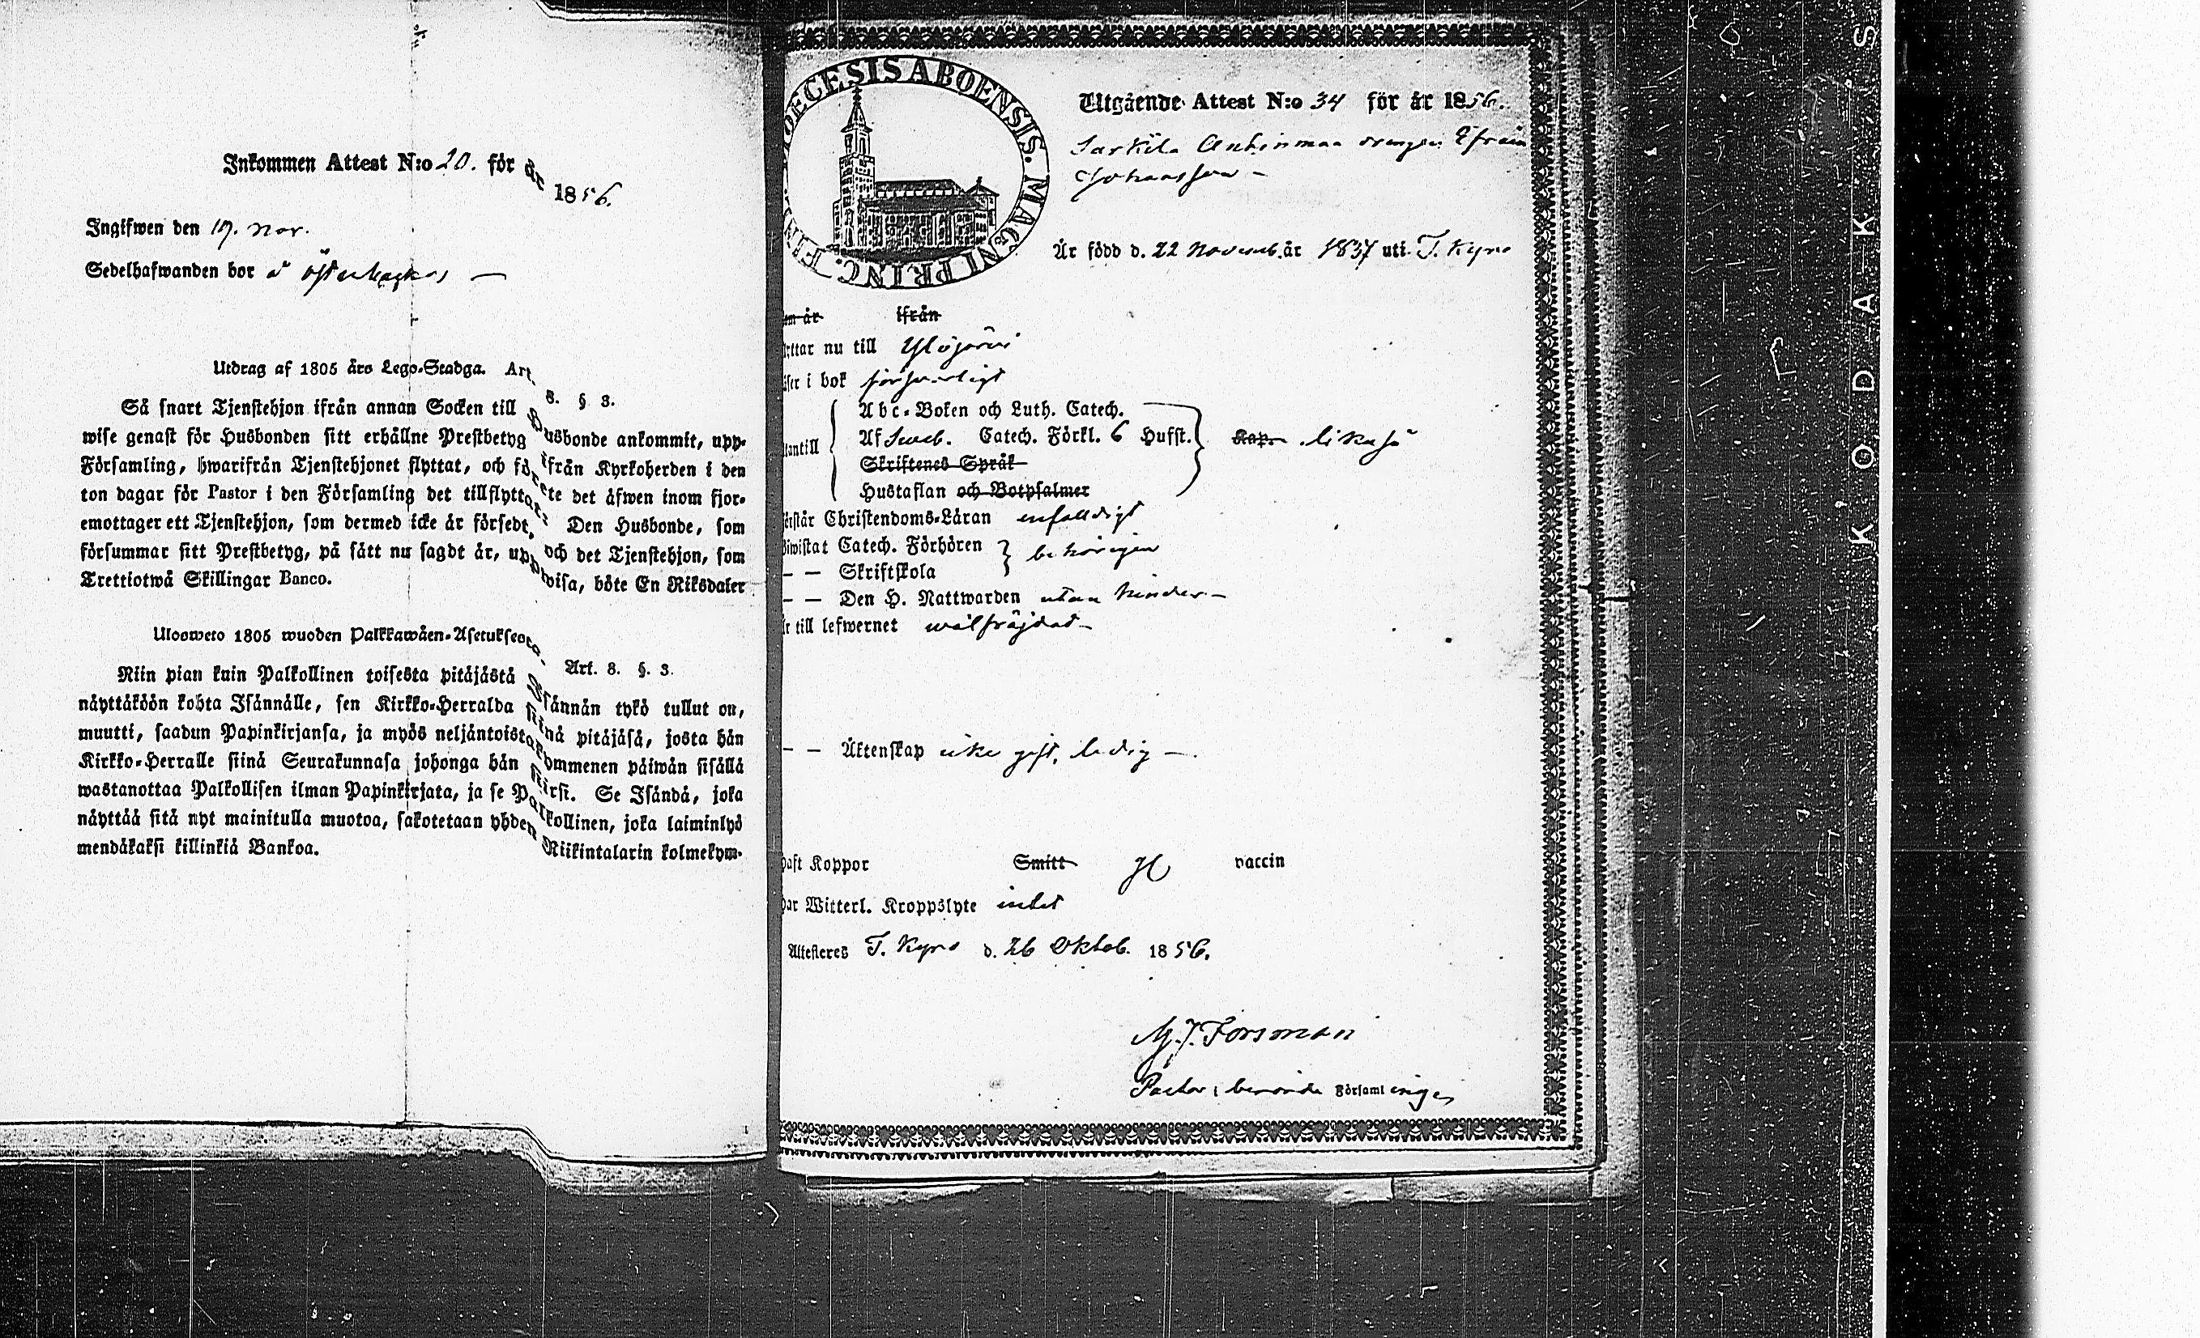 Inkommen Attest N:o 20. för år 1856.
Ingifwen den 19. Nov.
Sedelhafwanden bor å Österbackas —
Utdrag af 1805 års Lego-Stadga. Art. 8. § 3.
Så snart Tjenstehjon ifrån annan Socken till Husbonde ankommit, upp-
wise genast för Husbonden sitt erhållne Prestbetyg ifrån Kyrkoherden i den
Församling, hwarifrån Tjenstehjonet flyttat, och förete det äfwen inom fjor-
ton dagar för Pastor i den Församling det tillflyttat. Den Husbonde, som
emottager ett Tjenstehjon, som dermed icke är försedt, och det Tjenstehjon, som
försummar sitt Prestbetyg, på sätt nu sagdt är, uppwisa, böte En Riksdaler
Trettiotwå Skillingar Banco.
Ulosweto 1805 wuoden Palkkawäen-Asetuksesta. Art. 8. §. 3.
Niin pian kuin Palkollinen toisesta pitäjästä Isännän tykö tullut on,
näyttäköön kohta Isännälle, sen Kirkko-Herralda siinä pitäjäsä, josta hän
muutti, saadun Papinkirjansa, ja myös neljäntoistakymmenen päiwän sisällä
Kirkko-Herralle siinä Seurakunnasa johonga hän siirsi. Se Isändä, joka
wastanottaa Palkollisen ilman Papinkirjata, ja se Palkollinen, joka laiminlyö
näyttää sitä nyt mainitulla muotoa, sakotetaan yhden Riikintalarin kolmekym-
mendäkaksi killinkiä Bankoa.
DIOECESIS ABOENSIS. MAGNI PRINC. FINL.
Utgående Attest N:o 34 för år 1856.
Sarkila Anttinmaa drengen Efraim
Johansson —
Är född d. 22 Novemb. år 1837 uti T. Kyro
om år ifrån
yttar nu till Ylöjärvi
äser i bok försvarligt
Abc-Boken och Luth. Catech.
Af Sweb. Catech. Förkl. 6 Hufst.
utantill Kap. likaså
Skriftenes Språk
Hustaflan och Botpsalmer
Förstår Christendoms-Läran enfaldigt
Biwistat Catech. Förhören behörigen
— — Skriftskola
— — Den H. Nattwarden utan hinder —
Är till lefwernet wälfräjdad —
— — Äktenskap icke gift, ledig —.
haft Koppor Smitt vaccin
har Witterl. Kroppslyte intet
Attesteres T. Kyro d. 26 Oktob. 1856.
M. J. Forsman
Pastor i berörde Församlingen
KODAK S